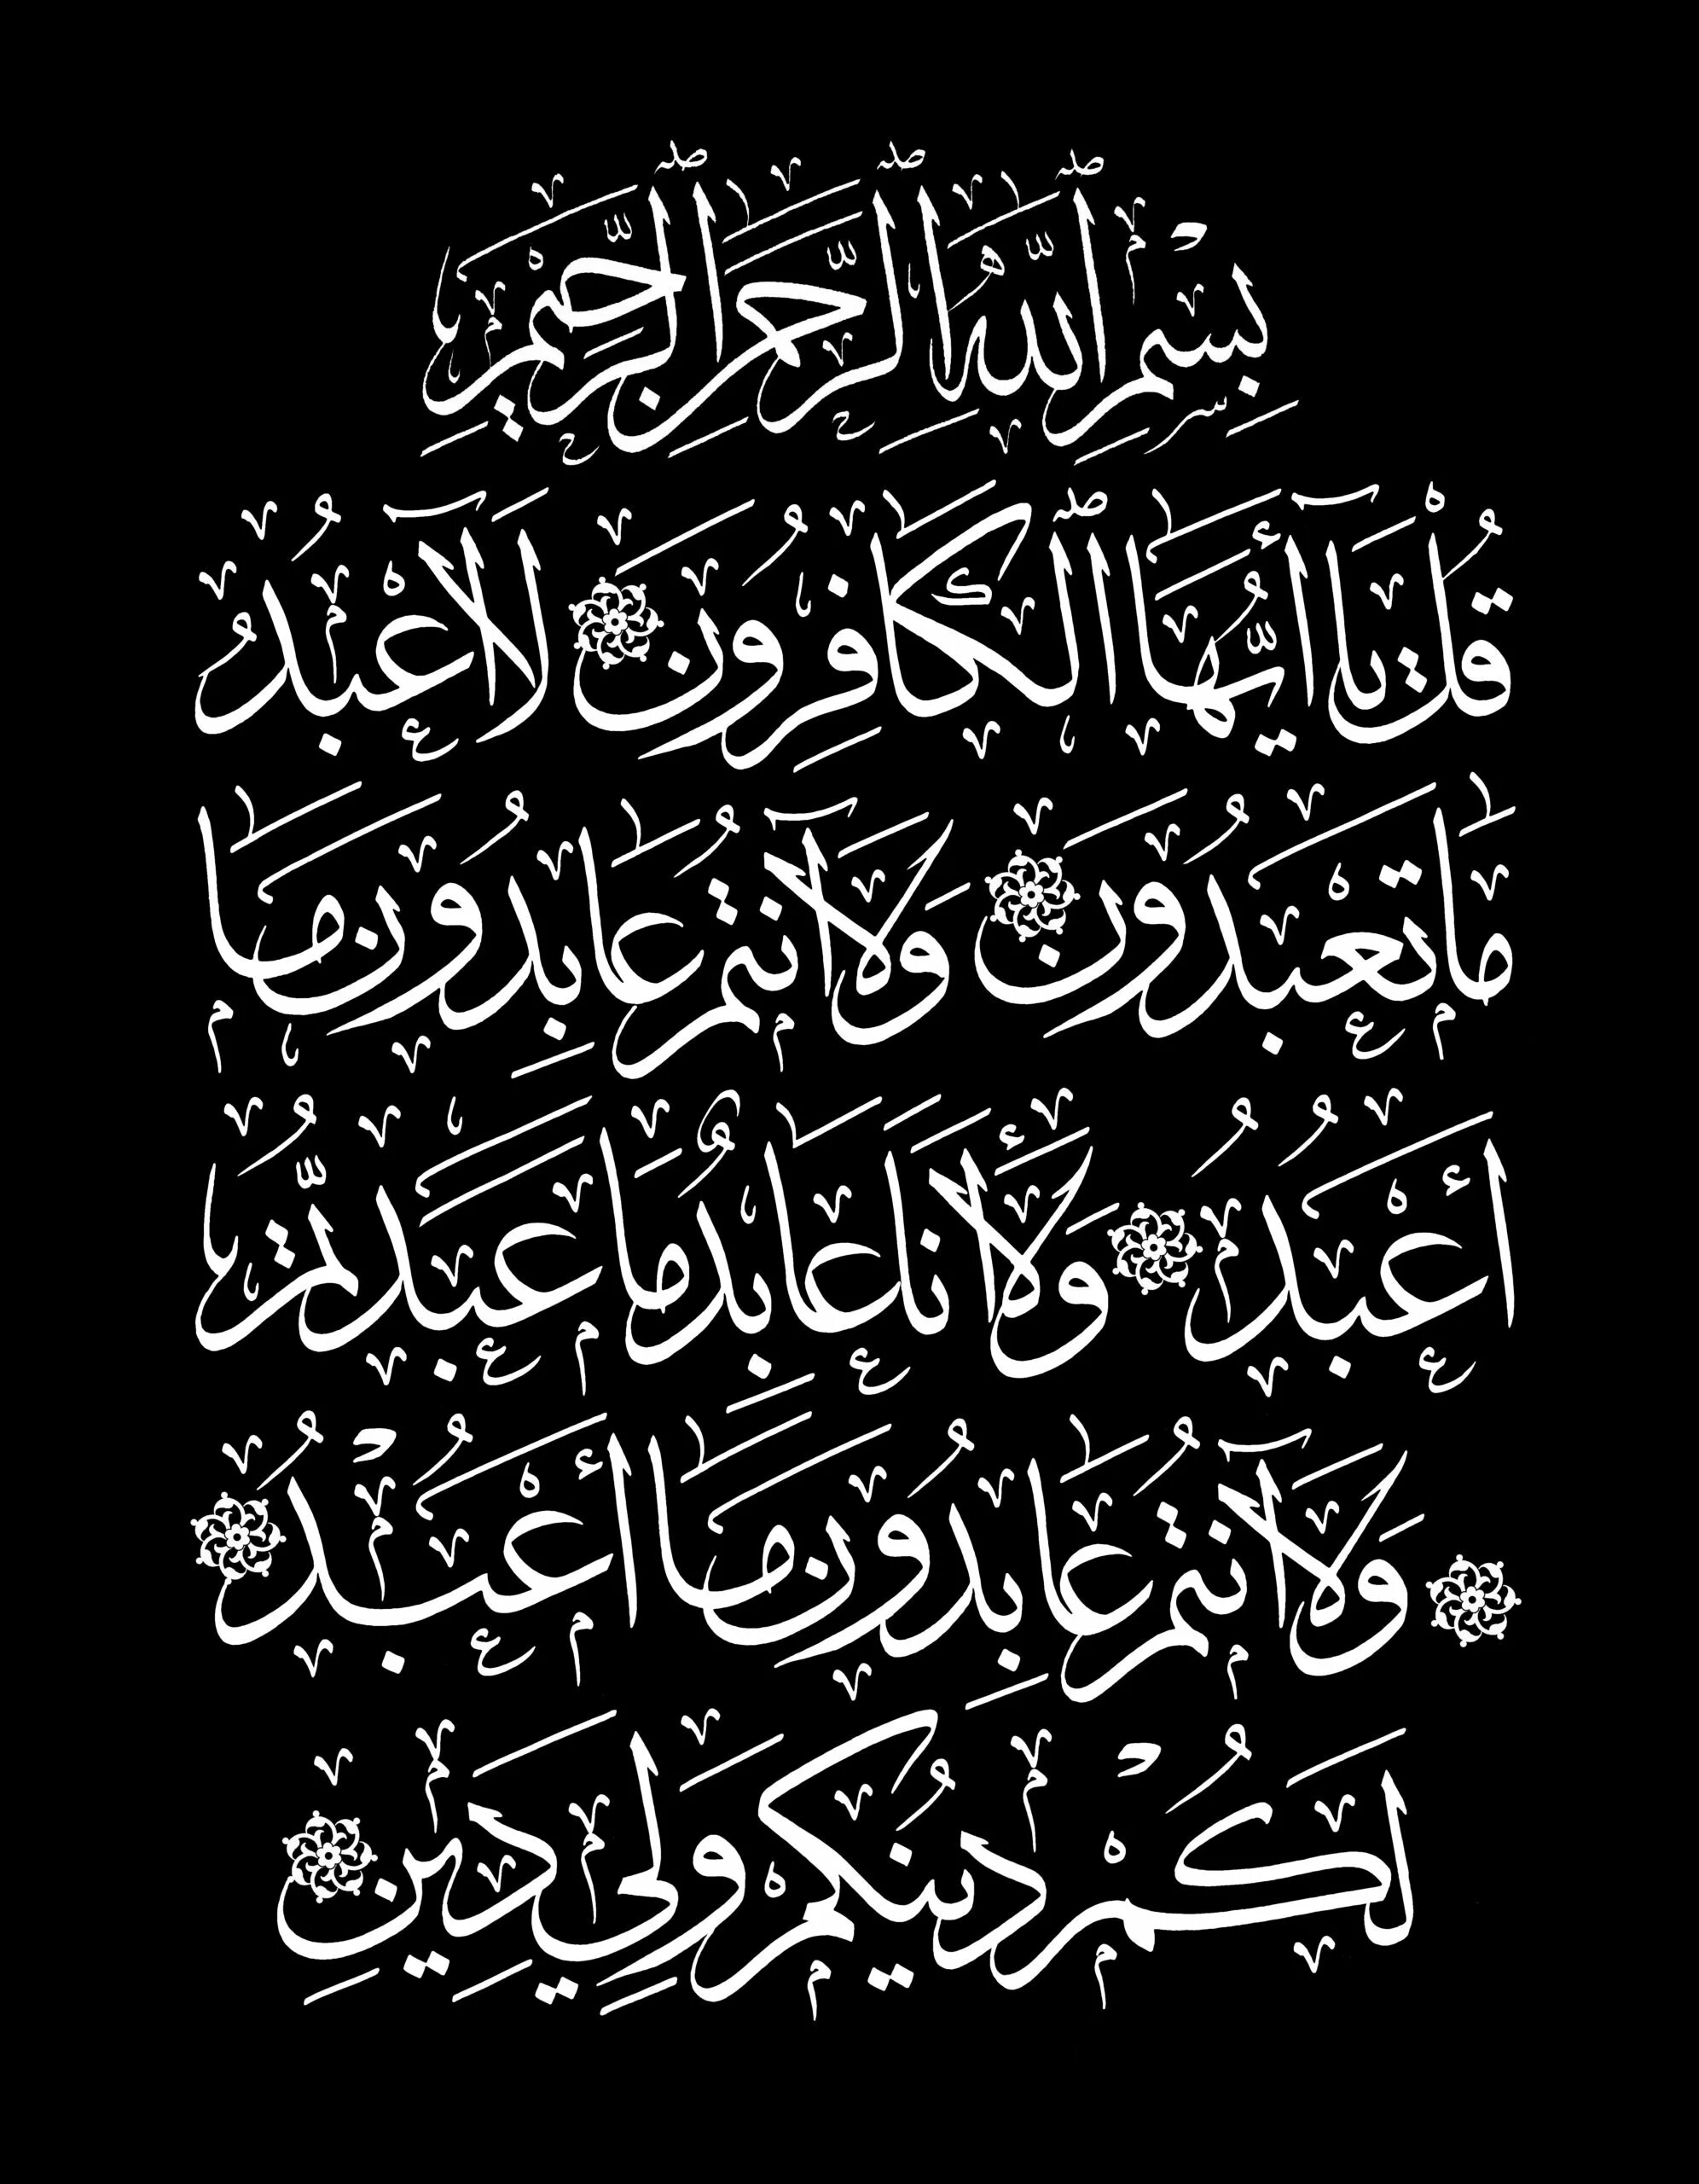 بِسْمِ اللَّهِ الرَّحْمَٰنِ الرَّحِيمِ
قُلْ يَا أَيُّهَا الْكَافِرُونَ ۝ لَا أَعْبُدُ
مَا تَعْبُدُونَ ۝ وَلَا أَنْتُمْ عَابِدُونَ مَا
أَعْبُدُ ۝ وَلَا أَنَا عَابِدٌ مَا عَبَدْتُمْ
۝ وَلَا أَنْتُمْ عَابِدُونَ مَا أَعْبُدُ ۝
لَكُمْ دِينُكُمْ وَلِيَ دِينِ ۝